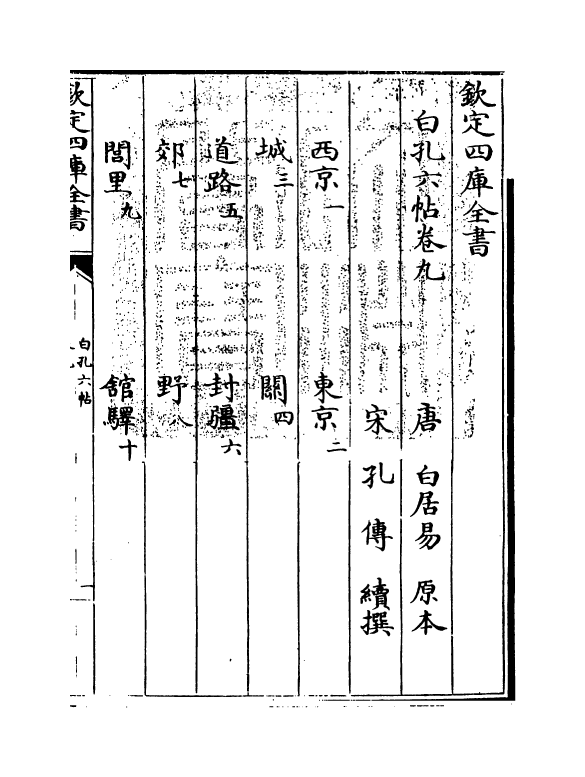 欽定四庫全書
白孔六帖卷九
唐 白居易 原本
宋 孔傳 續撰
西京一 東京二
城三 關四
道路五 封疆六
郊七 野八
閭里九 館驛十
欽定四庫全書
白孔六帖
一